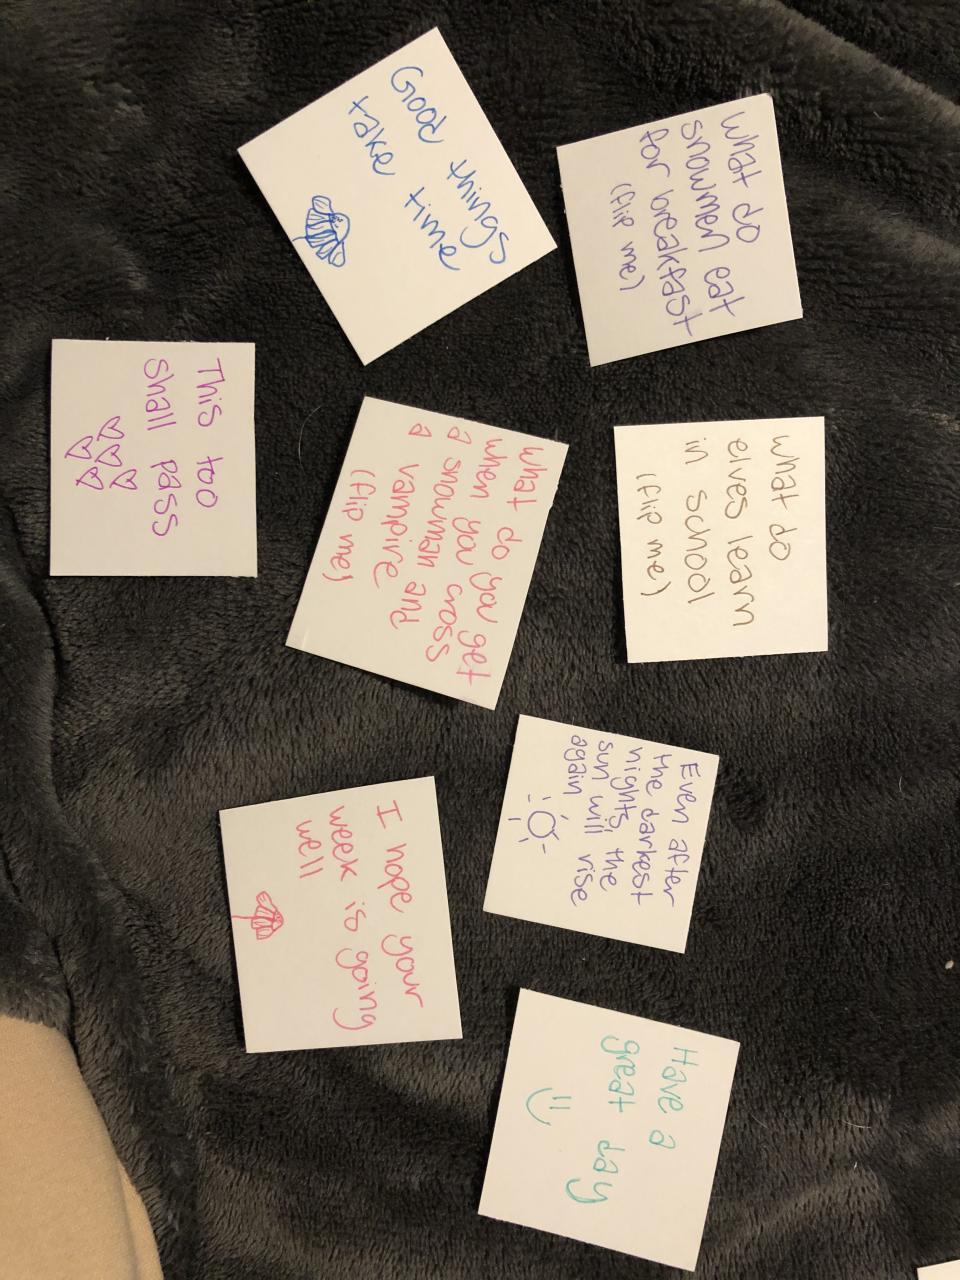 Good things
take time
What do
snowmen eat
for breakfast
(flip me)
This too
shall pass
What do you get
when you cross
a snowman and
a vampire
(flip me)
What do
elves learn
in school
(flip me)
Even after
the darkest
nights, the
sun will rise
again
I hope your
week is going
well
Have a
great day